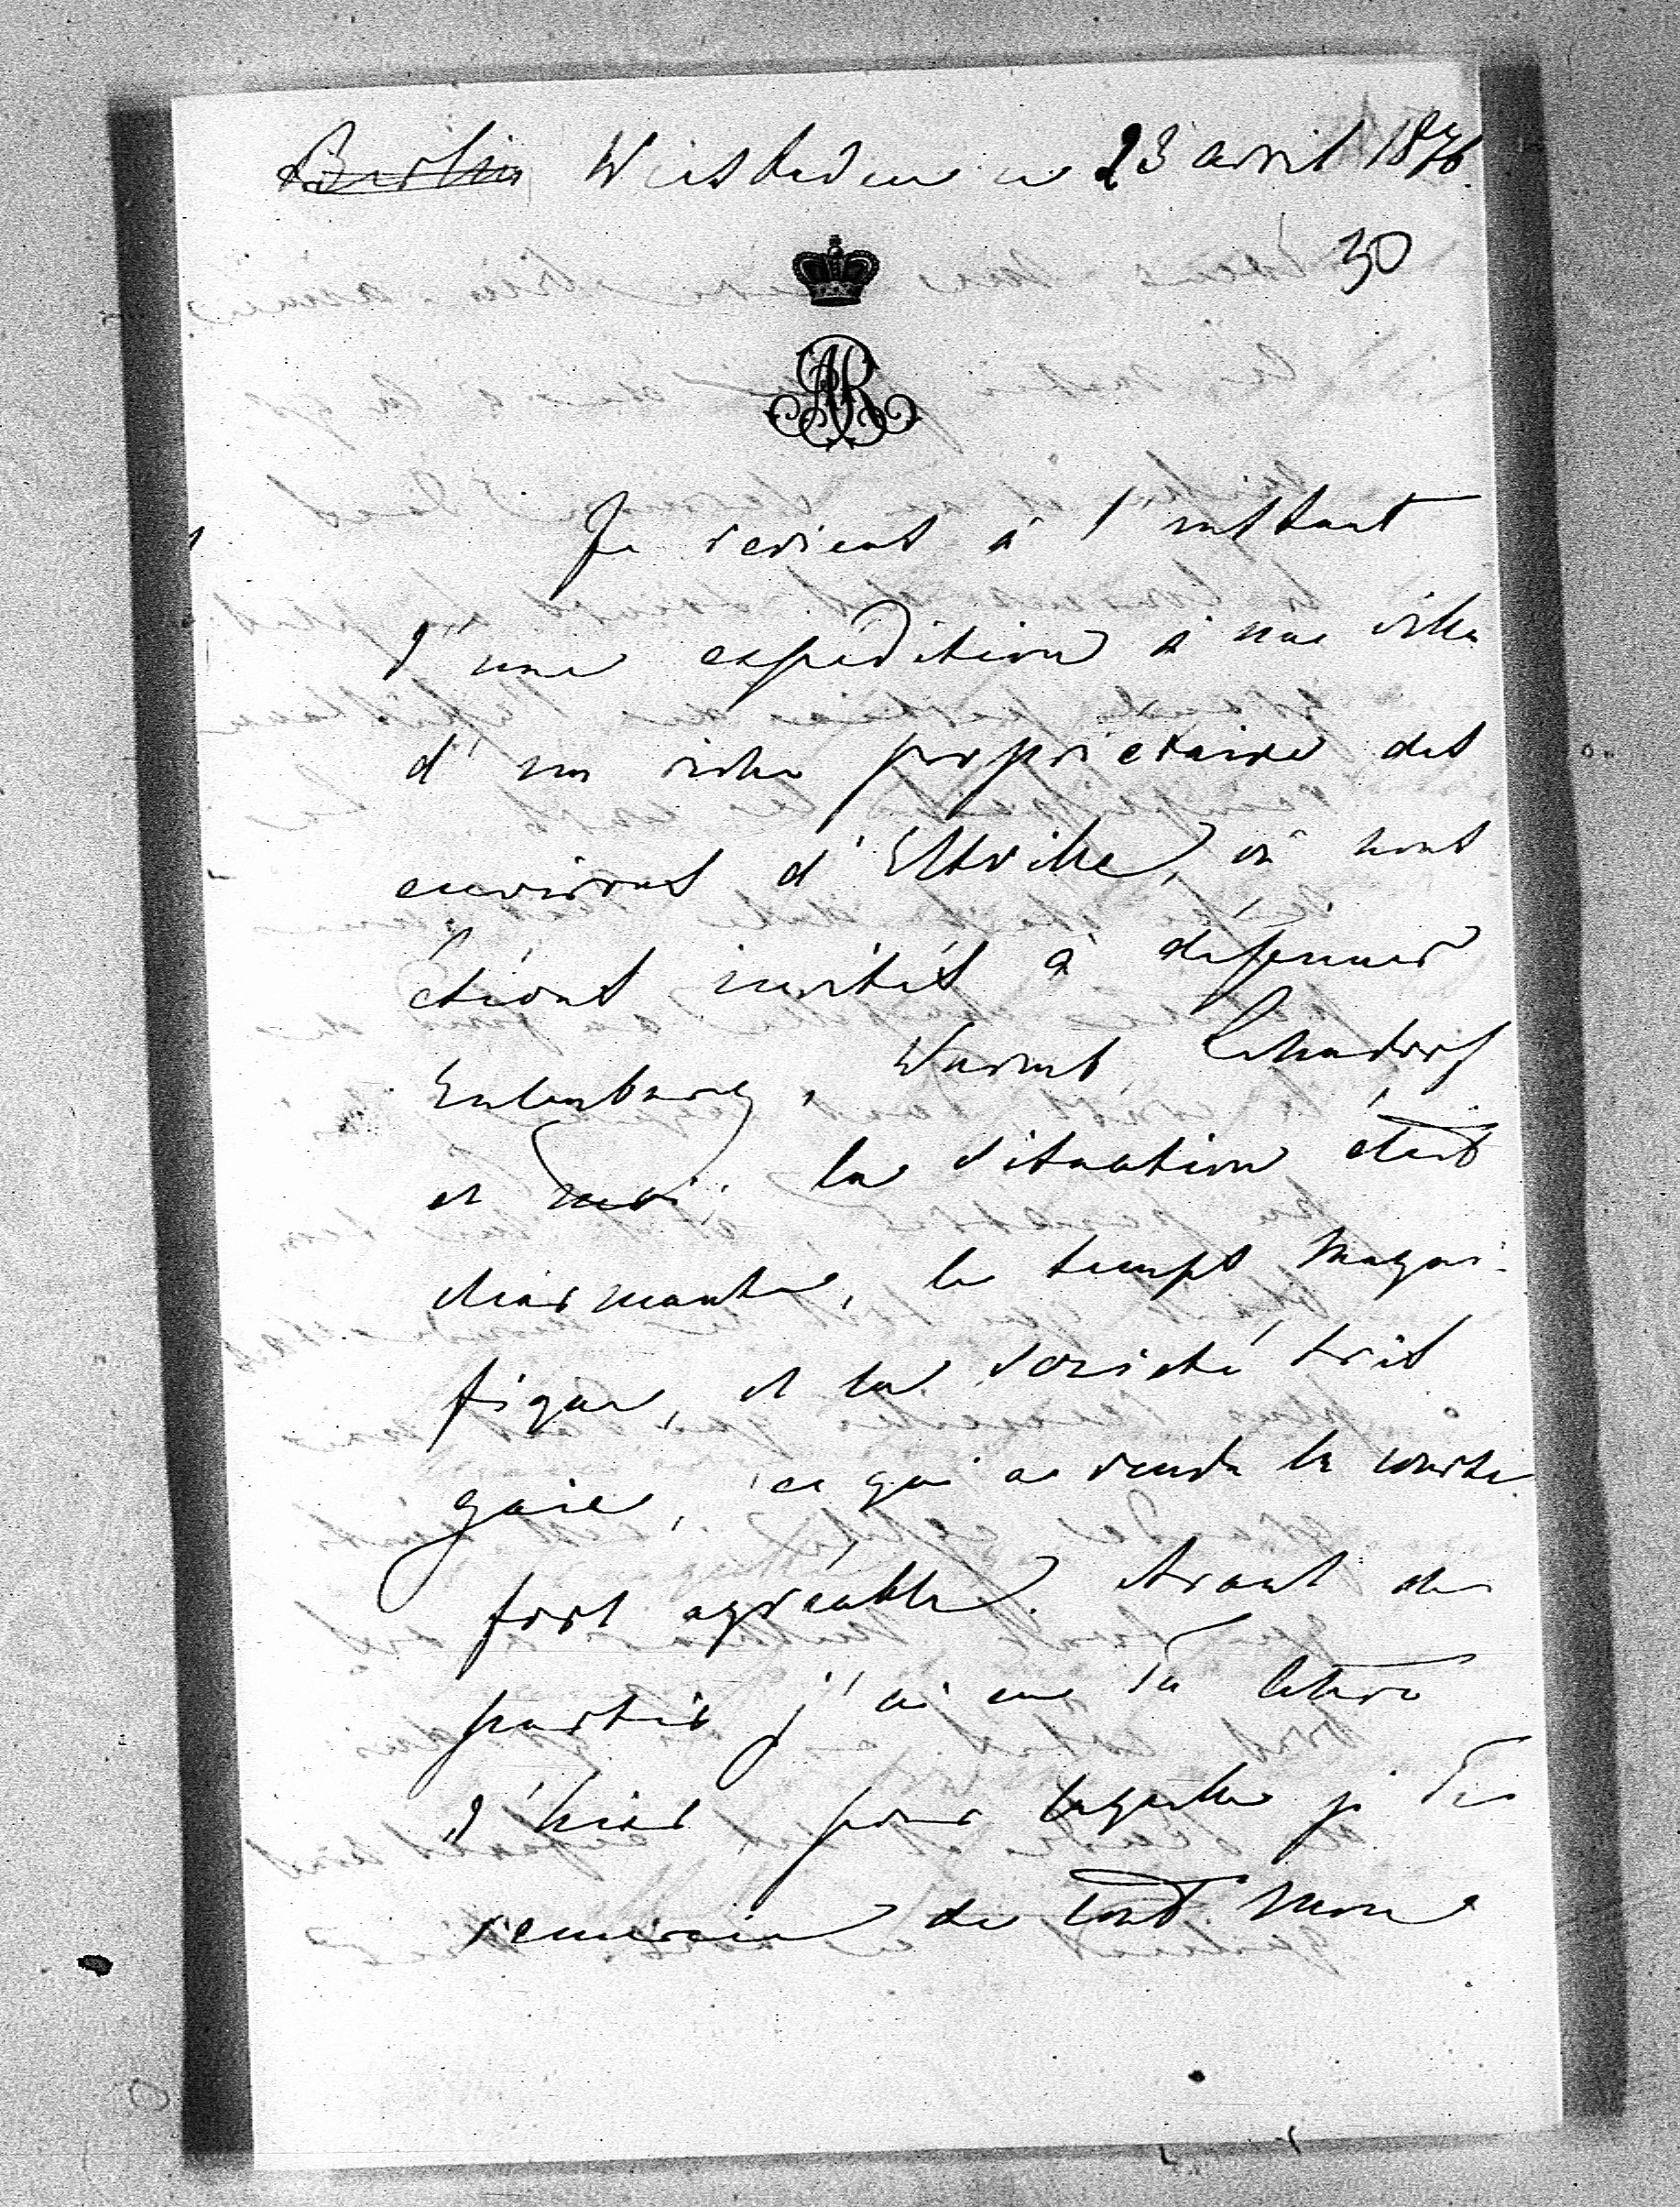 Berlin Wiesbaden ce 23 avril 1876.
30
AR
Je reviens à l'instant
d'une expedition à une villa
d'un riche propriétaire des
environs d'Eltville, où nous
étions invités à déjeuner
Eulenburg, Wurmb, Lehndorf
et moi; la situation était
charmante, le temps magni-
fique, et la société très
gaie, ce qui a rendu la course
fort agréable. Avant de
partir j'ai eu Ta lettre
d'hier, pour laquelle je Te
remercie de tout mon